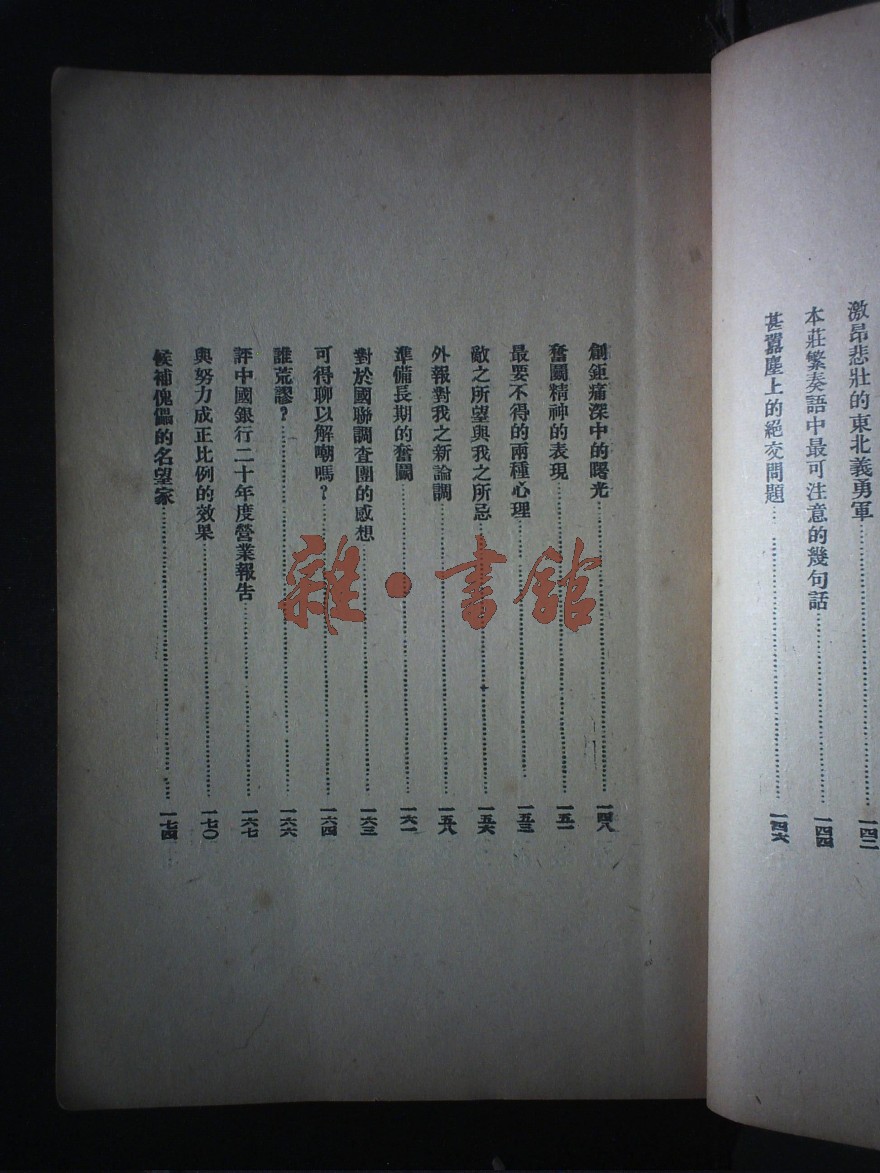 激昂悲壯的東北義勇軍……一四二
本莊繁奏語中最可注意的幾句話……一四四
甚囂塵上的絕交問題……一四六
創鉅痛深中的曙光……一四八
奮鬭精神的表現……一五一
最要不得的兩種心理……一五三
敵之所望與我之所忌……一五六
外報對我之新論調……一五八
準備長期的奮鬭……一六一
對於國聯調查團的感想……一六三
可得聊以解嘲嗎？……一六四
誰荒謬？……一六六
評中國銀行二十年度營業報告……一六七
與努力成正比例的效果……一七〇
候補傀儡的名望家……一七四
雜·書館